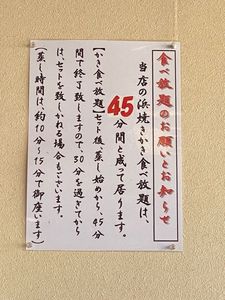 食べ放題のお願いとお知らせ
当店の浜焼きかき食べ放題は、
45分間と成って居ります。
【かき食べ放題】セット後、蒸し始めから、45分
間で終了致しますので、30分を過ぎてから
は、セットを致しかねる場合もございます。
(蒸し時間は、約10分～15分で御座います)